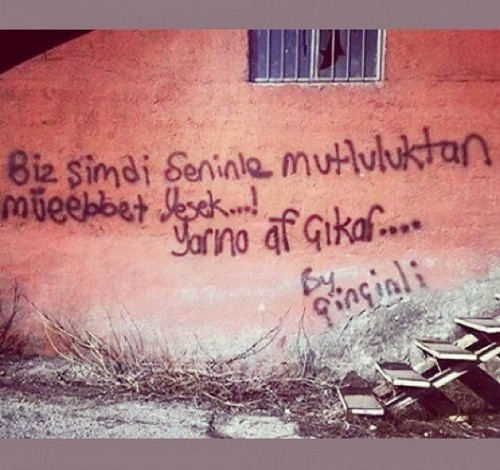 Biz şimdi Seninle mutluluktan
müeebbet yesek...!
Yarına af Gıkar....
By
Çinçinli